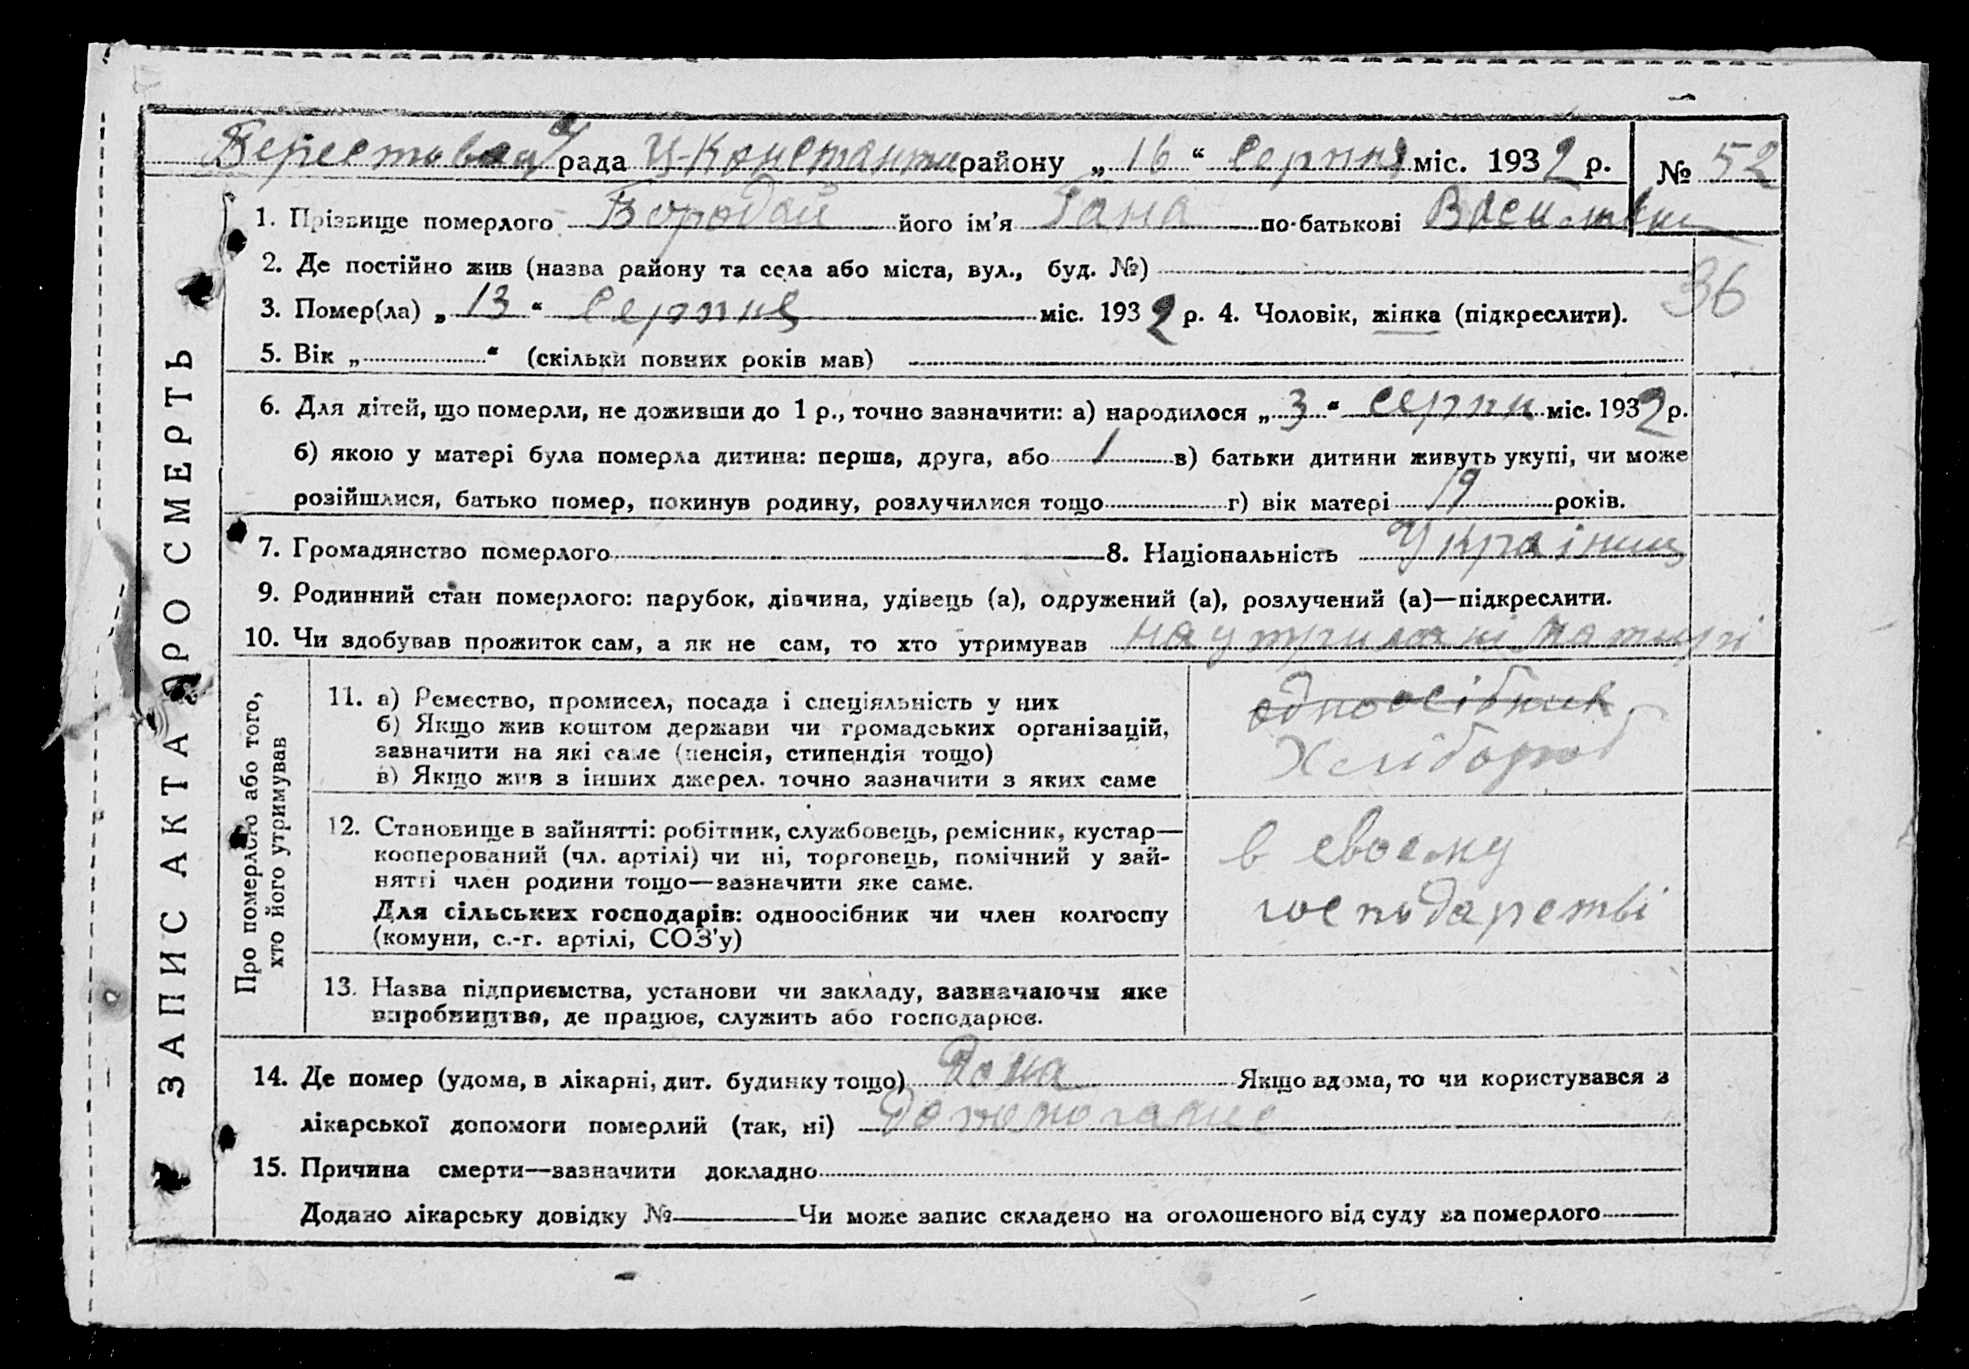 рада Ц-Константи району „ 16 “ серпня міс. 1932 р. № 52
1. Прізвище померлого Бородай його ім’я Гана по-батькові
2. Де постійно жив (назва району та села або міста, вул., буд. №)
36
3. Помер(ла) „ 13 “ серпня міс. 1932 р. 4. Чоловік, жінка (підкреслити).
5. Вік „ “ (скільки повних років мав)
6. Для дітей, що померли, не доживши до 1 р., точно зазначити: а) народилося „ 3 “ серпн міс. 1932 р.
б) якою у матері була померла дитина: перша, друга, або 1 в) батьки дитини живуть укупі, чи може
розійшлися, батько помер, покинув родину, розлучилися тощо г) вік матері 19 років.
7. Громадянство померлого 8. Національність Українц
9. Родинний стан померлого: парубок, дівчина, удівець (а), одружений (а), розлучений (а)—підкреслити.
10. Чи здобував прожиток сам, а як не сам, то хто утримував на утриманні матирі
ЗАПИС АКТА ПРО СМЕРТЬ
Про померлого або того,
хто його утримував
11. а) Ремество, промисел, посада і спеціяльність у них
б) Якщо жив коштом держави чи громадських організацій,
зазначити на які саме (пенсія, стипендія тощо)
в) Якщо жив з інших джерел. точно зазначити з яких саме
одноосібник
Хлібороб
12. Становище в зайнятті: робітник, службовець, ремісник, кустар—
кооперований (чл. артілі) чи ні, торговець, помічний у зай-
нятті член родини тощо—зазначити яке саме.
Для сільських господарів: одноосібник чи член колгоспу
(комуни, с.-г. артілі, СОЗ’у)
в своєму
господарстві
13. Назва підприємства, установи чи закладу, зазначаючи яке
виробництво, де працює, служить або господарює.
14. Де помер (удома, в лікарні, дит. будинку тощо) Дома Якщо вдома, то чи користувався з
лікарської допомоги померлий (так, ні)
15. Причина смерти—зазначити докладно
Додано лікарську довідку № Чи може запис складено на оголошеного від суду за померлого